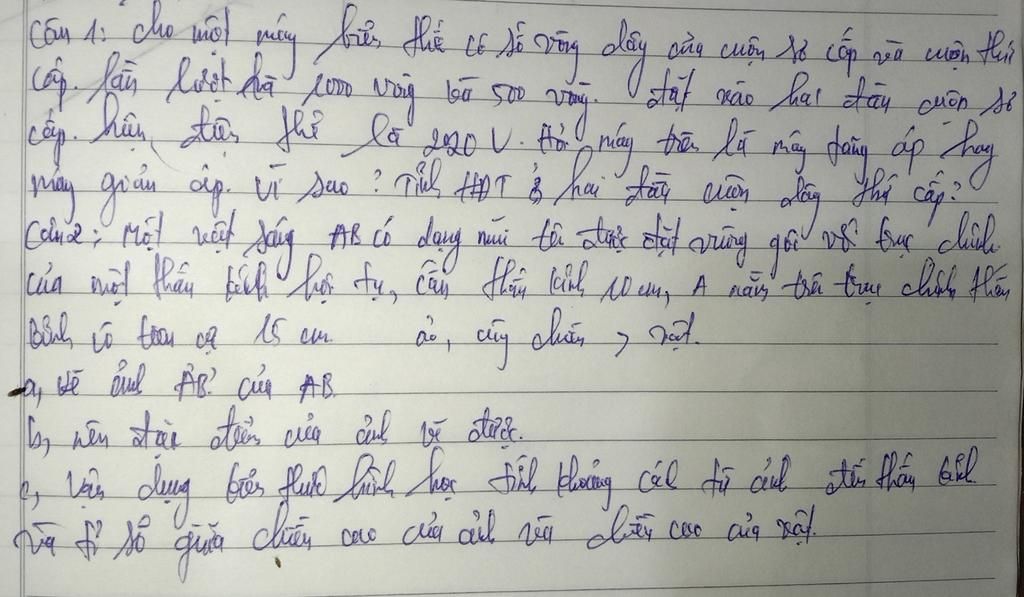 Câu 1: cho một máy biến thế có số vòng dây của cuộn sơ cấp và cuộn thứ
cấp. lần lượt là 1000 vòng và 500 vòng. đặt vào hai đầu cuộn sơ
cấp. hiệu điện thế là 220 V. Hỏi máy trên là máy tăng áp hay
máy giảm áp. vì sao? Tính HĐT ở hai đầu cuộn dây thứ cấp?
Câu 2: Một vật sáng AB có dạng mũi tên được đặt vuông góc với trục chính
của một thấu kính hội tụ, cách thấu kính 10 cm, A nằm trên trục chính thấu
kính có tiêu cự 15 cm. ảo, cùng chiều, > vật.
a, vẽ ảnh A'B' của AB
b, nêu đặc điểm của ảnh vẽ được.
c, Vận dụng kiến thức hình học tính khoảng cách từ ảnh đến thấu kính
và tỉ số giữa chiều cao của ảnh và chiều cao của vật.